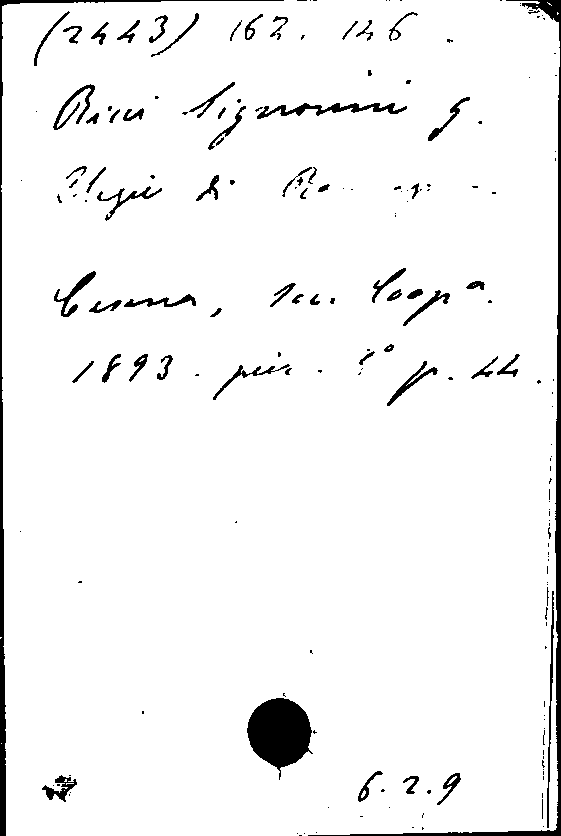 (2443) 162. 146.
Ricci Signorini G.
Elegie di
Cesena, Soc. Coopa.
1893. pic. 8° p. 44.
6.2.9